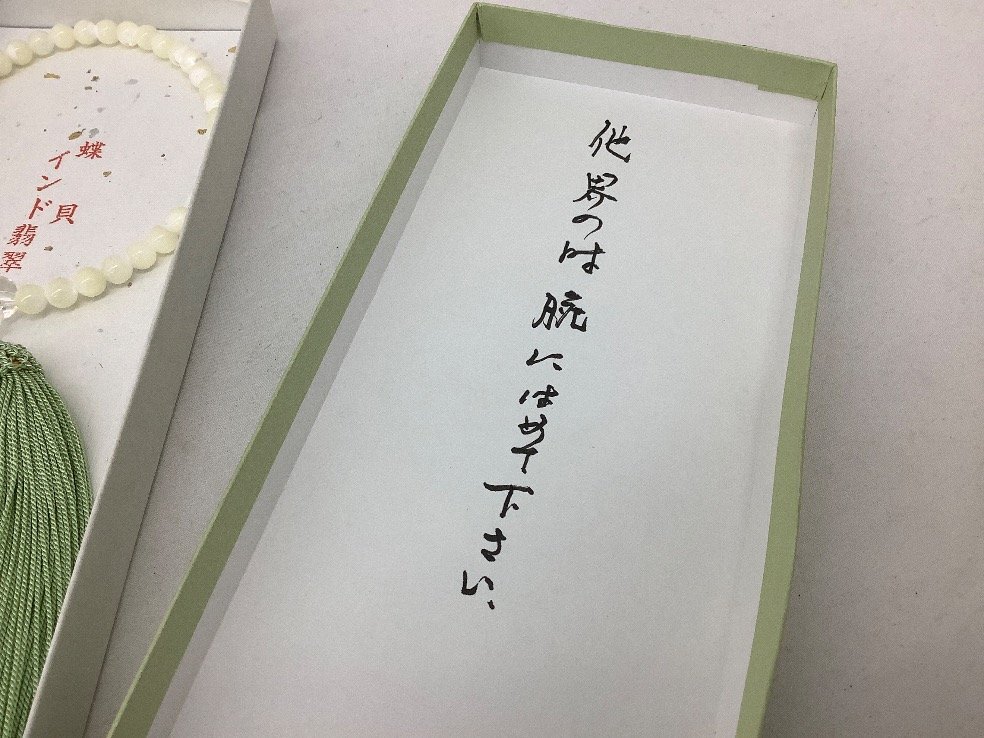 蝶貝
インド翡翠
他界の時腕にはめて下さい、